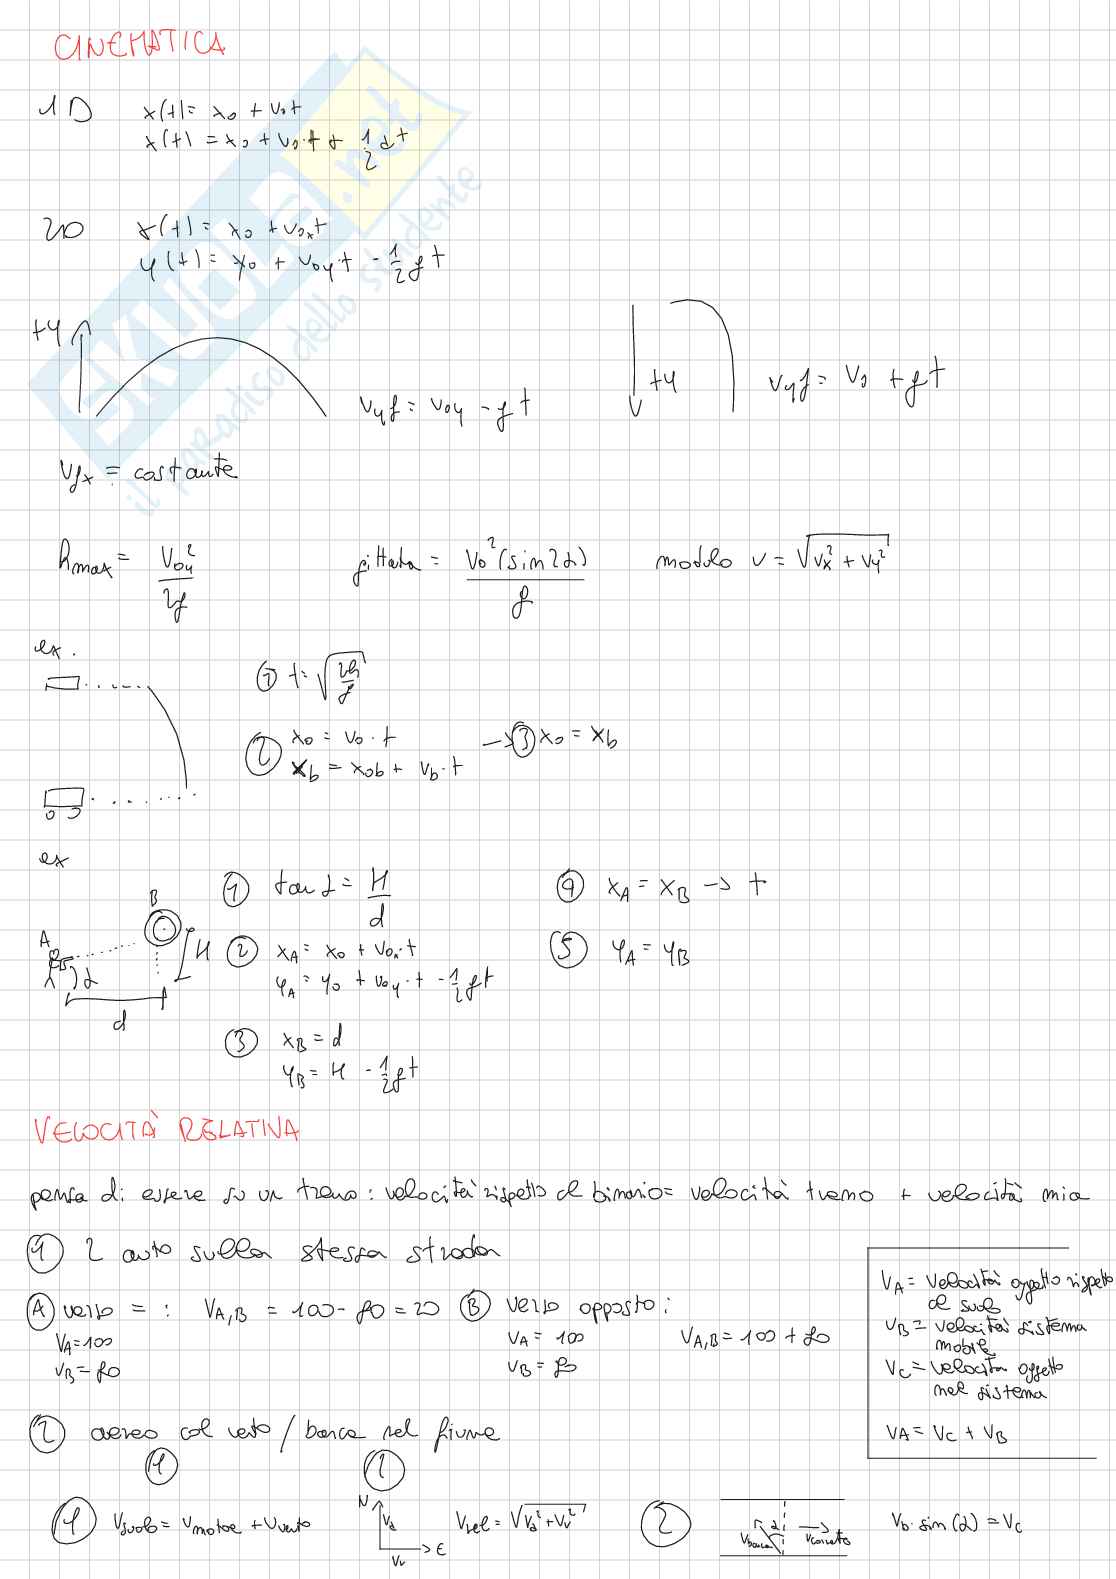 CINEMATICA
1D x(t)= x₀ + v₀t
x(t) = x₀ + v₀·t + 1/2 at
2D x(t) = x₀ + v₀ₓt
y(t) = y₀ + v₀y·t - 1/2 gt
+y
vyf = v₀y - gt
+y
vyf = v₀ + gt
vfx = costante
hmax = v₀y²/2g
gittata = v₀²(sin2α)/g
modulo v = √(vx² + vy²)
ex.
① t = √(2h/g)
② x₀ = v₀·t
xb = x₀b + vb·t
→ ③ x₀ = xb
ex
A B H α d
① tan α = H/d
② xA = x₀ + v₀ₓ·t
yA = y₀ + v₀y·t - 1/2 gt
③ xB = d
yB = H - 1/2 gt
④ xA = xB → t
⑤ yA = yB
VELOCITÀ RELATIVA
pensa di essere su un treno: velocità rispetto al binario = velocità treno + velocità mia
① 2 auto sulla stessa strada
Ⓐ verso = : VA,B = 100 - 80 = 20
VA = 100
VB = 80
Ⓑ verso opposto:
VA = 100
VB = 80
VA,B = 100 + 80
VA = velocità oggetto rispetto al suolo
VB = velocità sistema mobile
VC = velocità oggetto nel sistema
VA = VC + VB
② aereo col vento / barca nel fiume
① ②
① Vsuolo = Vmotore + Vvento
N Va E Vv
Vrel = √(Va² + Vv²)
② α Vbarca Vcorrente
Vb·sin(α) = Vc
SKUOLA.net
il paradiso dello studente